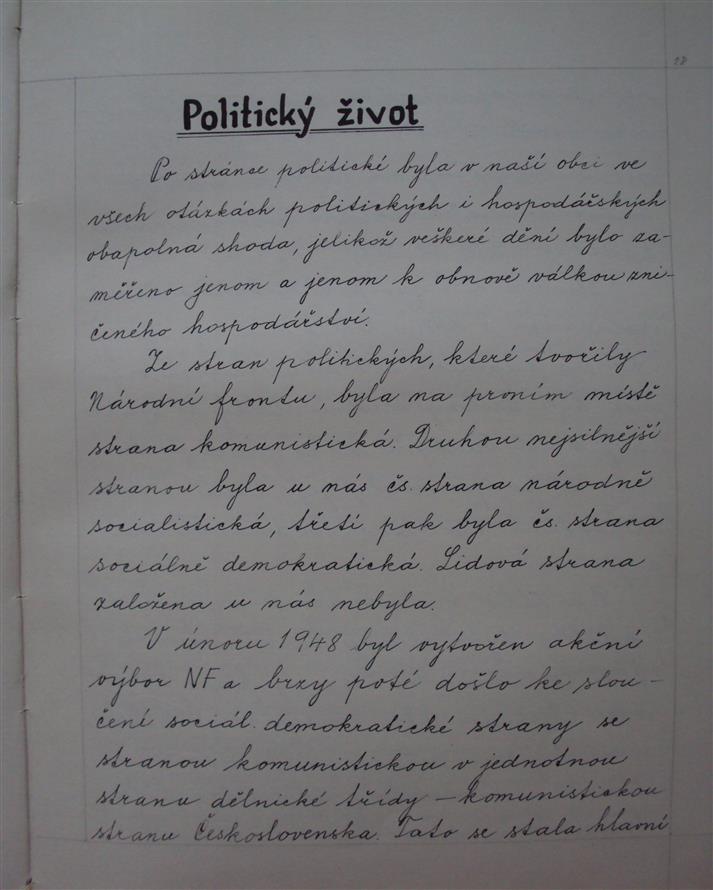 28
Politický život
Po stránce politické byla v naší obci ve
všech otázkách politických i hospodářských
obapolná shoda, jelikož veškeré dění bylo za-
měřeno jenom a jenom k obnově válkou zni-
čeného hospodářství.
Ze stran politických, které tvořily
Národní frontu, byla na prvním místě
strana komunistická. Druhou nejsilnější
stranou byla u nás čs. strana národně
socialistická, třetí pak byla čs. strana
sociálně demokratická. Lidová strana
založena u nás nebyla.
V únoru 1948 byl vytvořen akční
výbor NF a brzy poté došlo ke slou-
čení sociál. demokratické strany se
stranou komunistickou v jednotnou
stranu dělnické třídy – komunistickou
stranu Československa. Tato se stala hlavní